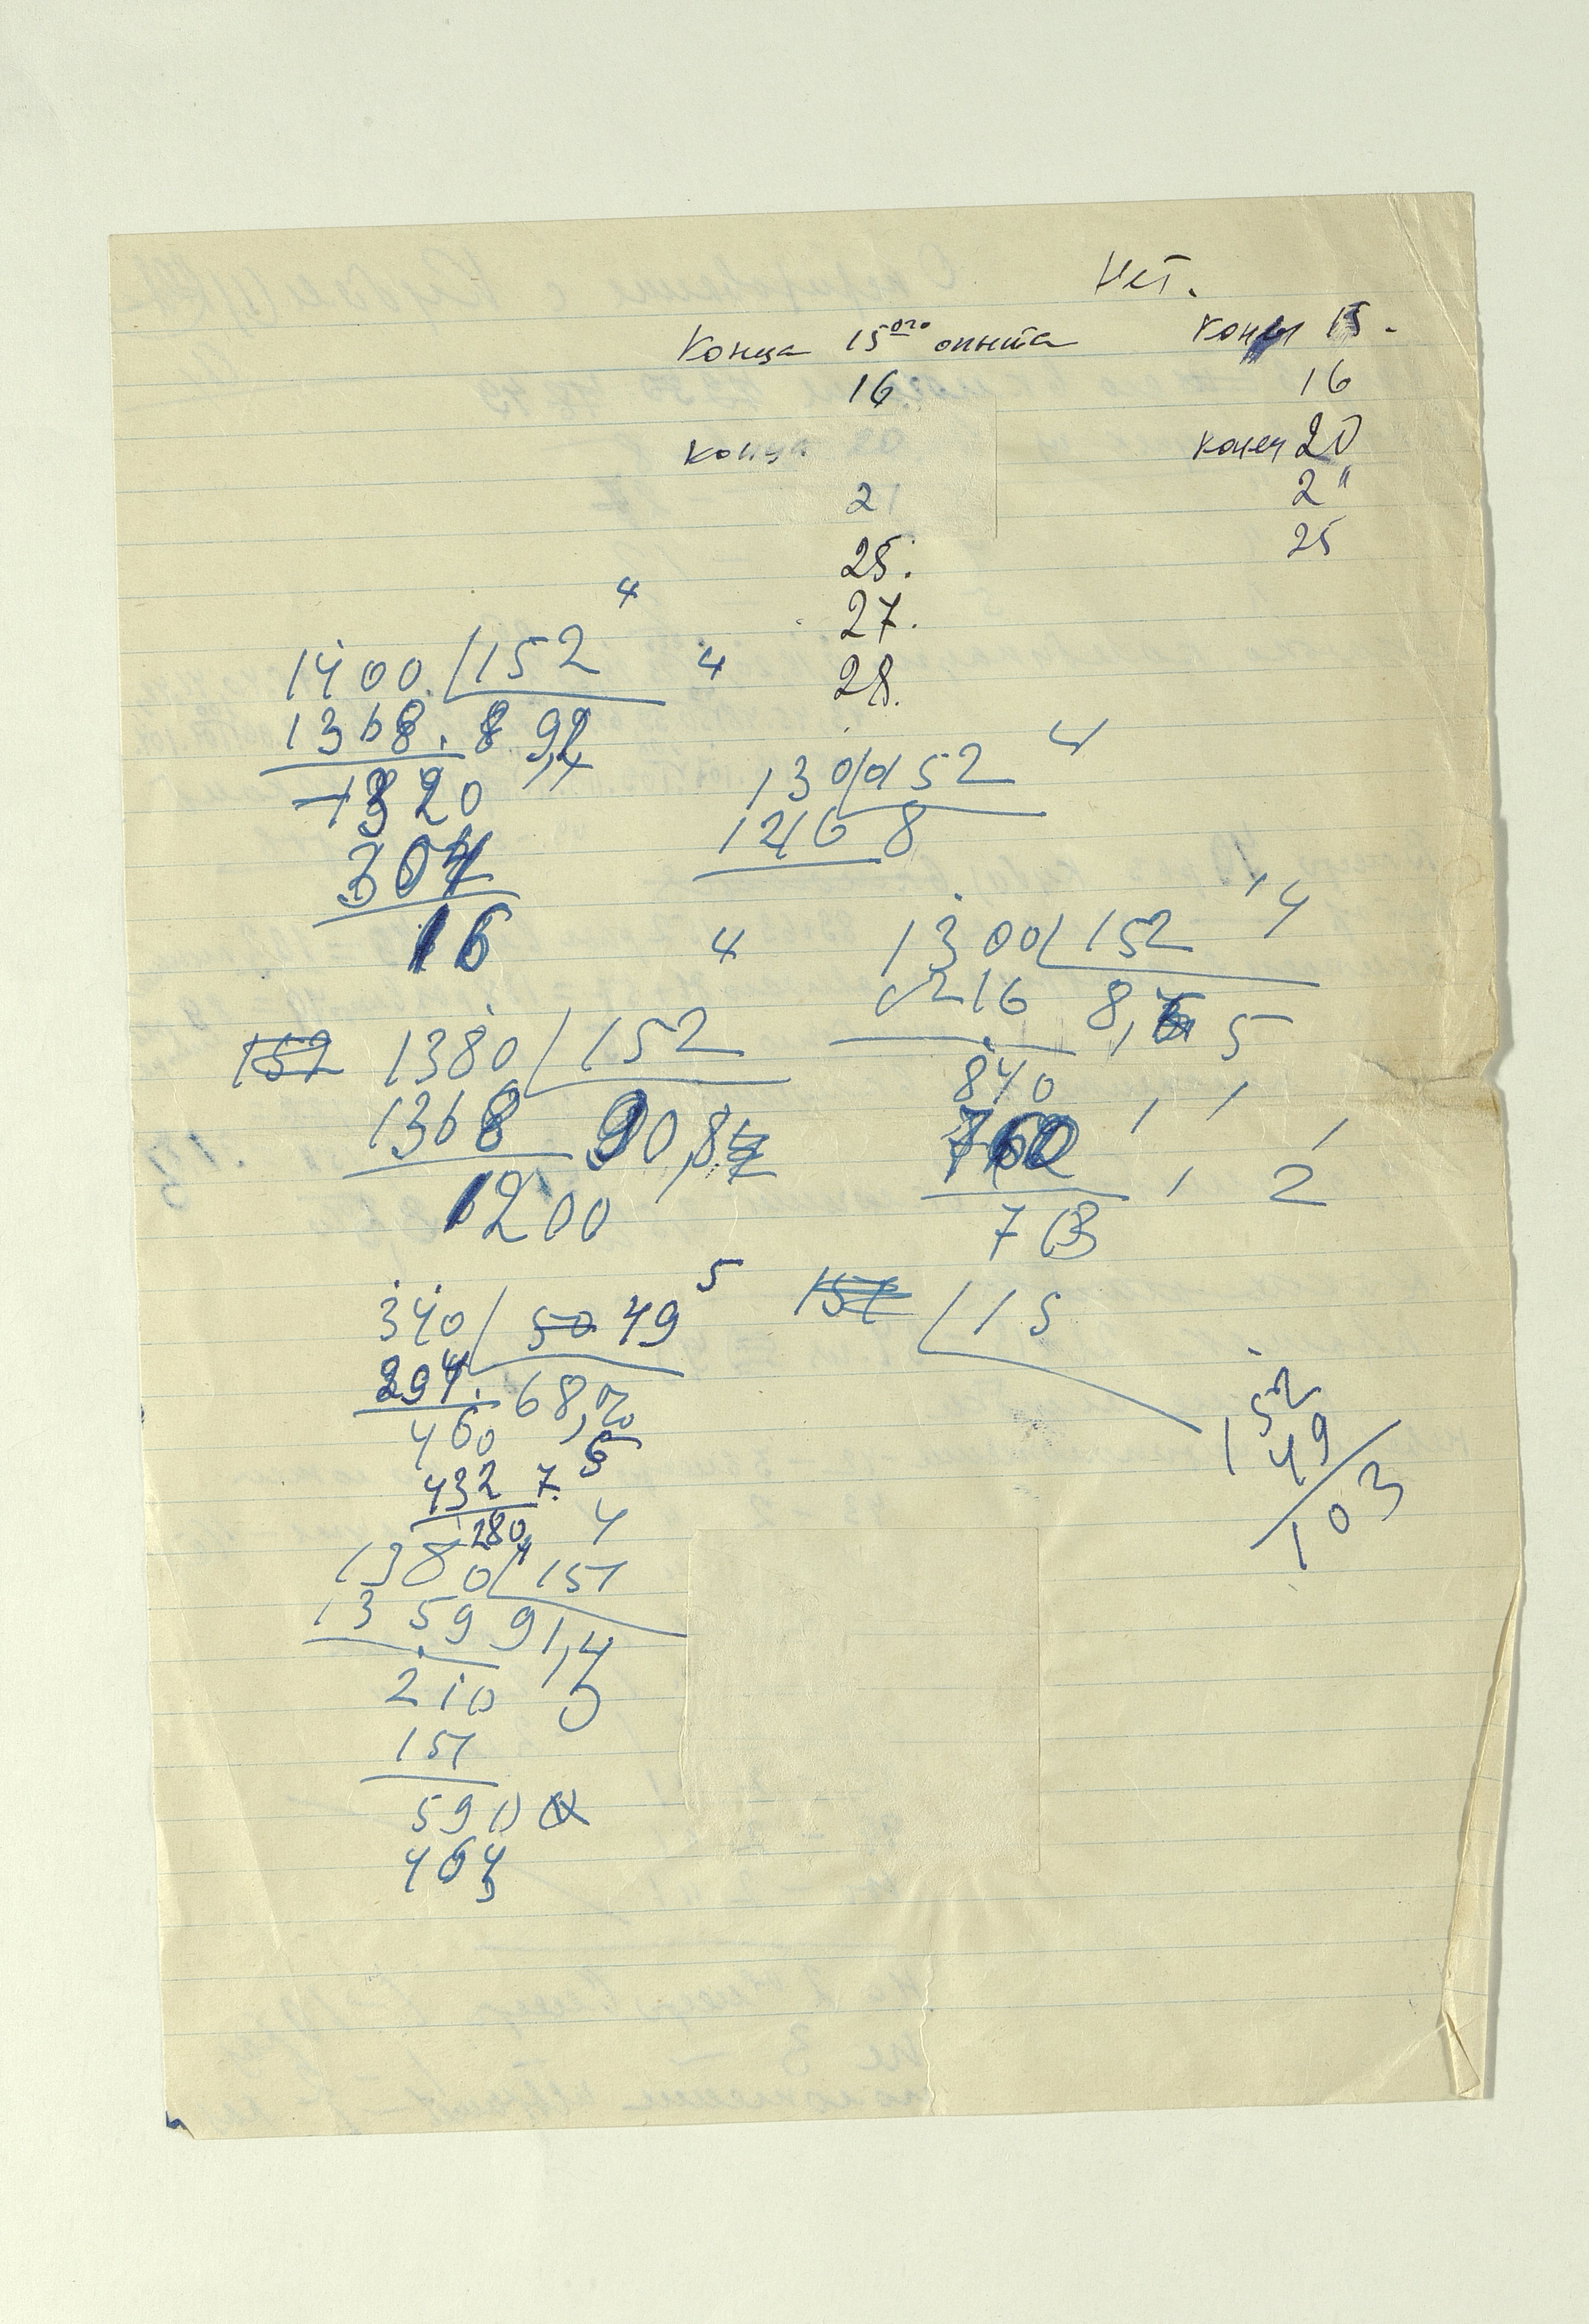 Нет.
Конца 15ого опыта
16
Конца
21
25.
27.
28.
Конец 15.
16
Конец 20
2"
25
4
1400 152
4
1368 8 9,2
1320
304
16
1300 152 4
1216 8
4
1300 152 4
1216 8,5
840
760
152 1380 152
1368 90,8
1200
2
340 50 49 5
294 68,
460
432 7.
280
4
1380 151
1359 91,4
210
151
590
151 15
152
49
103